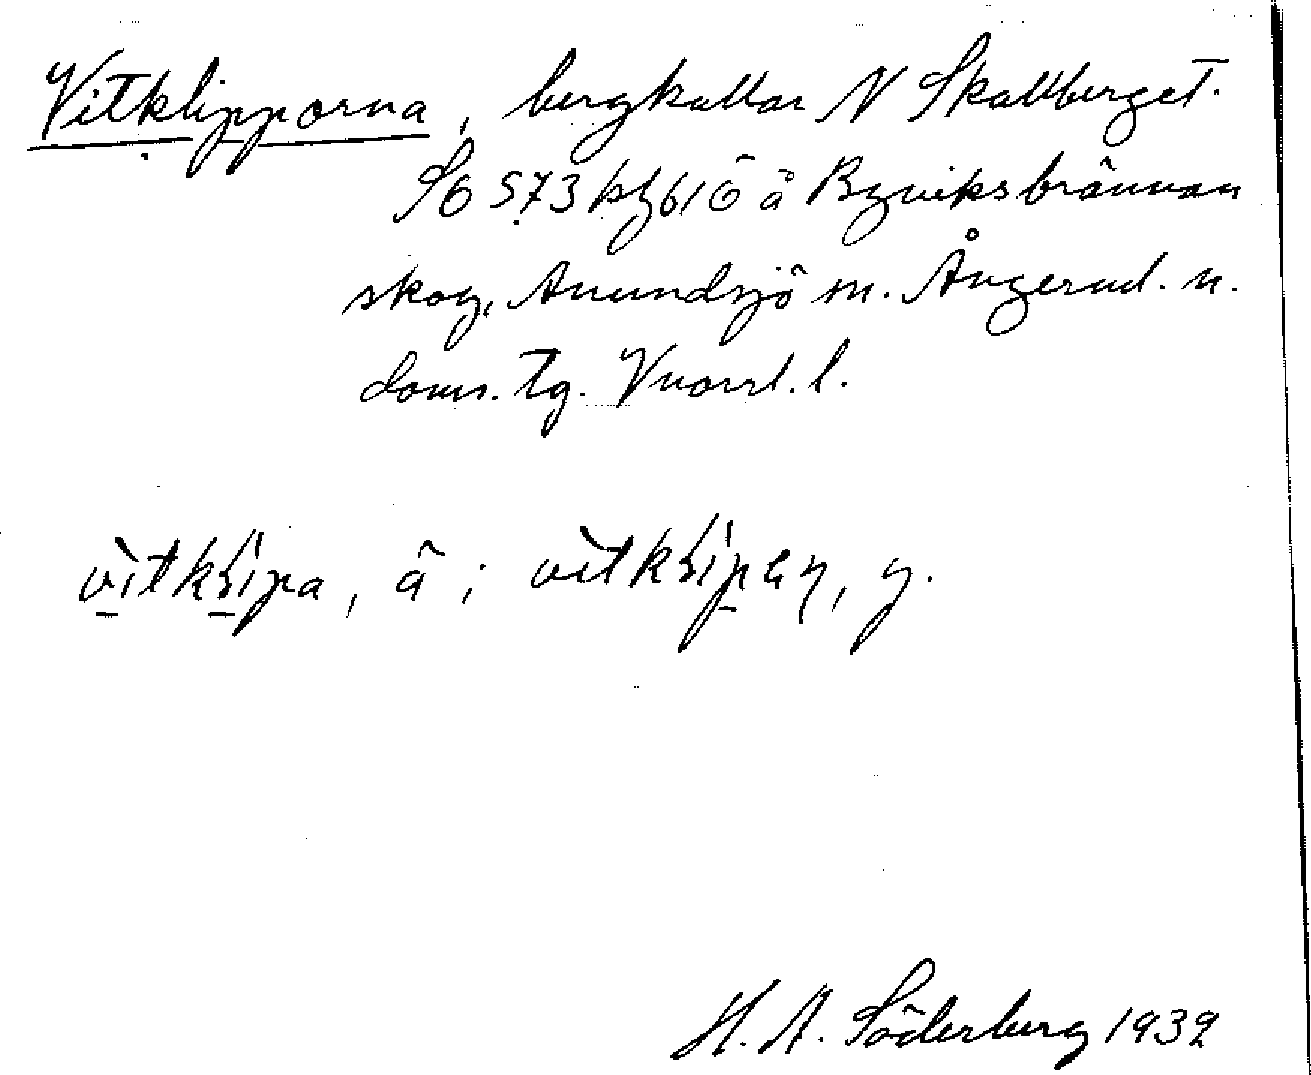 Vitklipporna, bergkullar N Skallberget.
S6 573 hz 616 å Byviksbrännan
skog, Anundsjö sn. Ångerml. n.
doms. tg. Vnorrl. l.
vitklipa, å; vitklipen, y.
H. A. Söderberg 1932